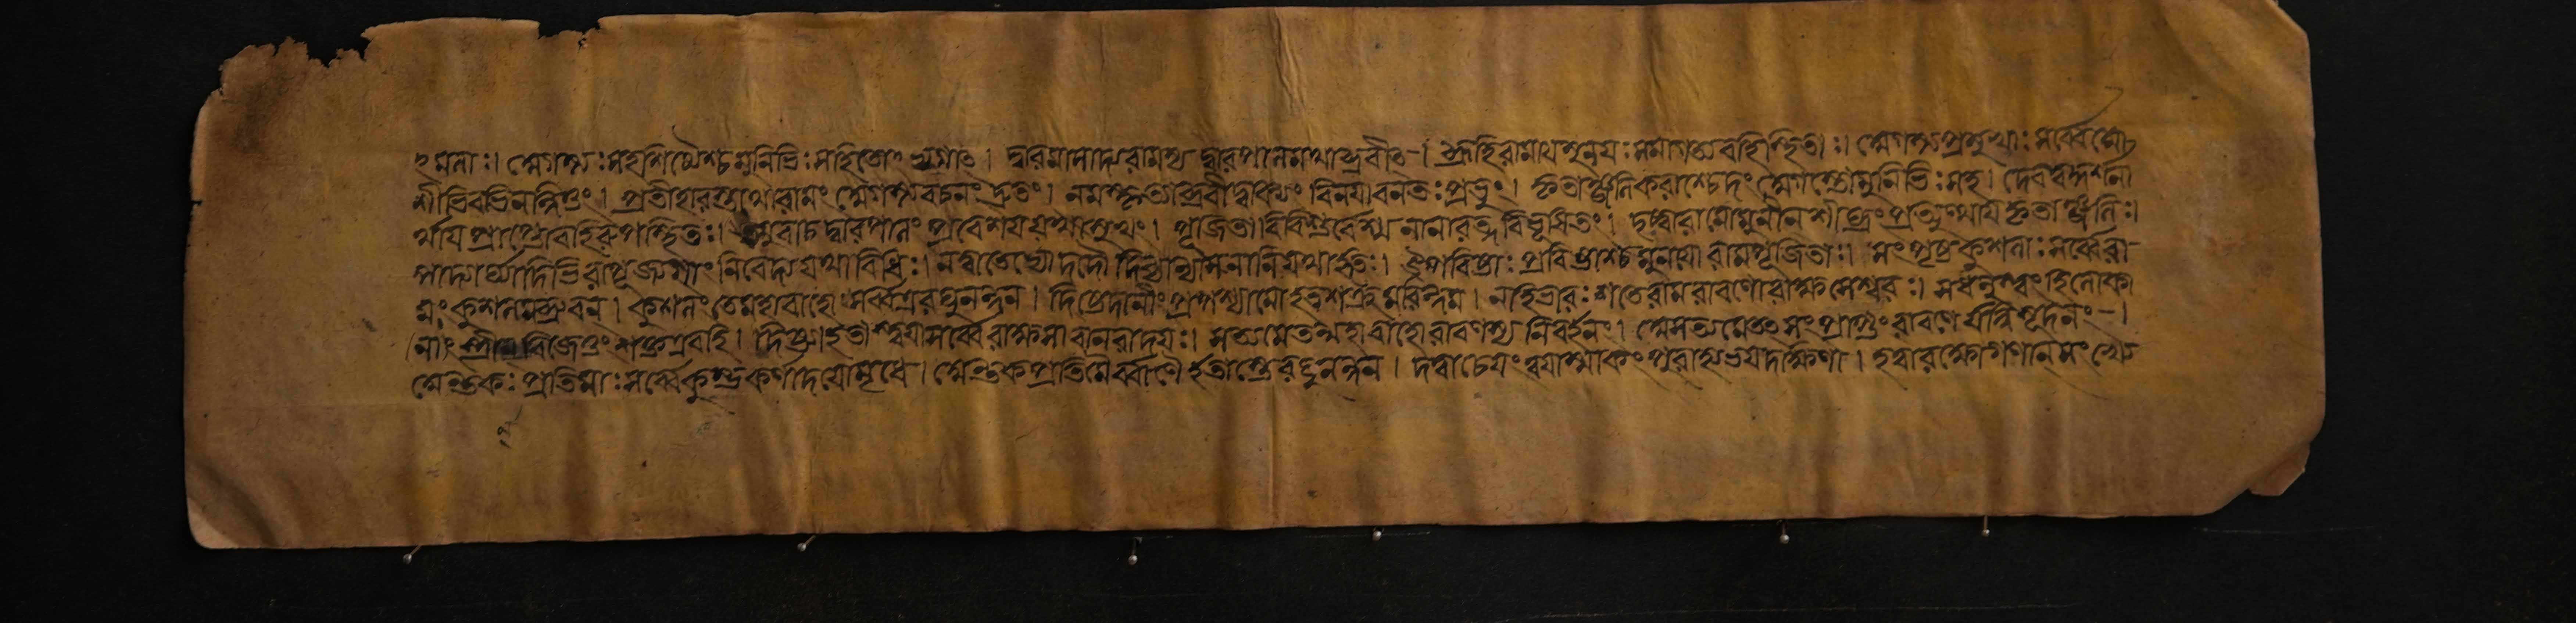 ঽমলাঃ। অগস্ত্যঃ সহশিষ্যৈশ্চ মুনিভিঃ সহিতো । দ্বারমাসাদ্য রামস্য দ্বারপালমথাব্রবীৎ। ব্রূহি রামায় মুনয়ঃ সমাগত্য বহিঃস্থিতাঃ। অগস্ত্যপ্রমুখাঃ সর্ব্বে আ
শীর্ভিরভিনন্দিতুং। প্রতীহারস্ততো রামং অগস্ত্যবচনং দ্রুতং। নমস্কৃত্যাব্রবীদ্বাক্যং বিনয়াবনতঃ প্রভুং। কৃতাঞ্জলি অগস্ত্যো মুনিভিঃ সহ। দেব ত্বদ্দর্শনা
র্থায় প্রাপ্তো বহিরুপস্থিতঃ। তমুবাচ দ্বারপালং প্রবেশয় যথাসুখং। পূজিতা বিবিশুর্বেশ্ম নানারত্নবিভূষিতং। দৃষ্ট্বা রামো মুনীন্ শীঘ্রং প্রত্যুত্থায় কৃতাঞ্জলিঃ।
পাদ্যার্ঘ্যাদিভিরাপূজ্য গাং নিবেদ্য যথাবিধিঃ। নত্বা তেভ্যো দদৌ দিব্যান্যাসনানি যথার্হতঃ। উপবিষ্টাঃ প্রবিষ্টাশ্চ মুনয়ো রামপূজিতাঃ। সংপৃষ্টকুশলাঃ সর্ব্বে রা
মং কুশলমব্রুবন্। কুশলং তে মহাবাহো সর্ব্বত্র রঘুনন্দন। দিষ্ট্যেদানীং প্রপশ্যামো হতশত্রুমরিন্দম। নহি ভারঃ স তে রাম রাবণো রাক্ষসেশ্বরঃ। সধনুস্ত্বং হি লোকা
নাং ত্রীন্ বিজেতুং শক্ত এবহি। দিষ্ট্যা হতাস্ত্বয়া সর্ব্বে রাক্ষসা রাবণাদয়ঃ। সহ্যমেতন্মহাবাহো রাবণস্য নিবর্হণং। অসহ্যমেতৎ সংপ্রাপ্তং রাবণের্যন্নিষূদনং।
অন্তকপ্রতিমাঃ সর্ব্বে কুম্ভকর্ণাদয়ো মৃধে। অন্তকপ্রতিমৈর্ব্বাণৈর্হতাস্তে রঘুনন্দন। দত্ত্বা চেয়ং ত্বয়াস্মাকং পুরা হ্যভয়দক্ষিণা। হত্বা রক্ষোগণান্ সংখ্যে